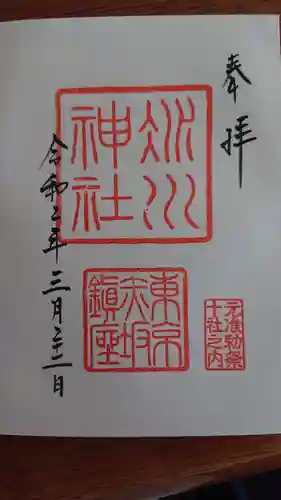 奉拝
氷川神社
東京赤坂鎮座
元准勅祭十社之内
令和二年三月二十二日